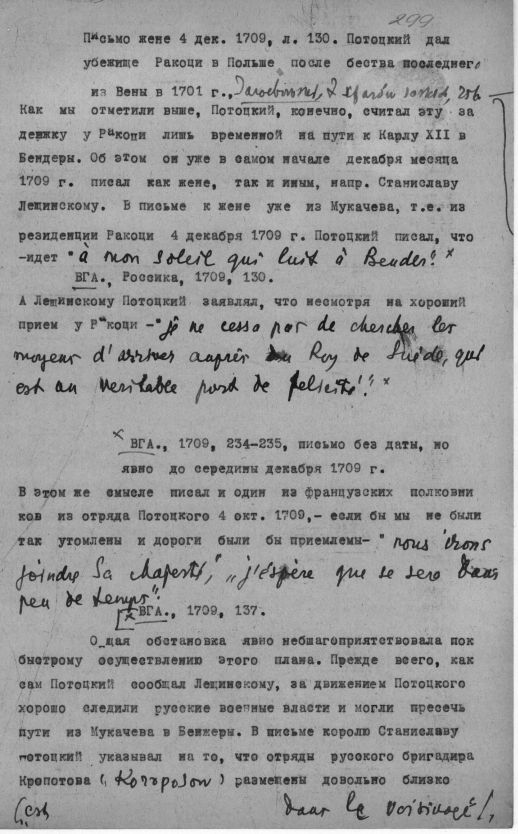 299
Письмо жене 4 дек. 1709, л. 130. Потоцкий дал
убежище Ракоци в Польше после бества последнего
из Вены в 1701 г.,
Как мы отметили выше, Потоцкий, конечно, считал эту за
держку у Ракоци лишь временной на пути к Карлу XII в
Бендеры. Об этом он уже в самом начале декабря месяца
1709 г. писал как жене, так и иным, напр. Станиславу
Лещинскому. В письме к жене уже из Мукачева, т.е. из
резиденции Ракоци 4 декабря 1709 г. Потоцкий писал, что
-идет "à mon soleil qui luit à Bender." x
ВГА., Россика, 1709, 130.
А Лещинскому Потоцкий заявлял, что несмотря на хороший
прием у Ракоци -"je ne cesse pas de chercher les
moyens d'arriver auprès du Roy de Suède, qui
est un veritable port de felicité". x
x ВГА., 1709, 234-235, письмо без даты, но
явно до середины декабря 1709 г.
В этом же смысле писал и один из французских полковни
ков из отряда Потоцкого 4 окт. 1709,- если бы мы не были
так утомлены и дороги были бы приемлемы- "nous irons
joindre Sa Majesté", "j'espère que se sera dans
peu de temps".
x ВГА., 1709, 137.
О щая обстановка явно небшагоприятствовала пок
быстрому осуществлению этого плана. Прежде всего, как
сам Потоцкий сообщал Лещинскому, за движением Потоцкого
хорошо следили русские военные власти и могли пресечь
пути из Мукачева в Бенжеры. В письме королю Станиславу
потоцкий указывал на то, что отряды русского бригадира
Кропотова ( Koroposow ) размещены довольно близко
(est dans le voisinage),